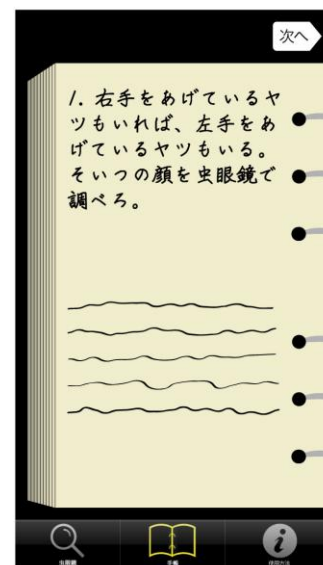 次へ
1. 右手をあげているヤ
ツもいれば、左手をあ
げているヤツもいる。
そいつの顔を虫眼鏡で
調べろ。
虫眼鏡
手帳
使用方法